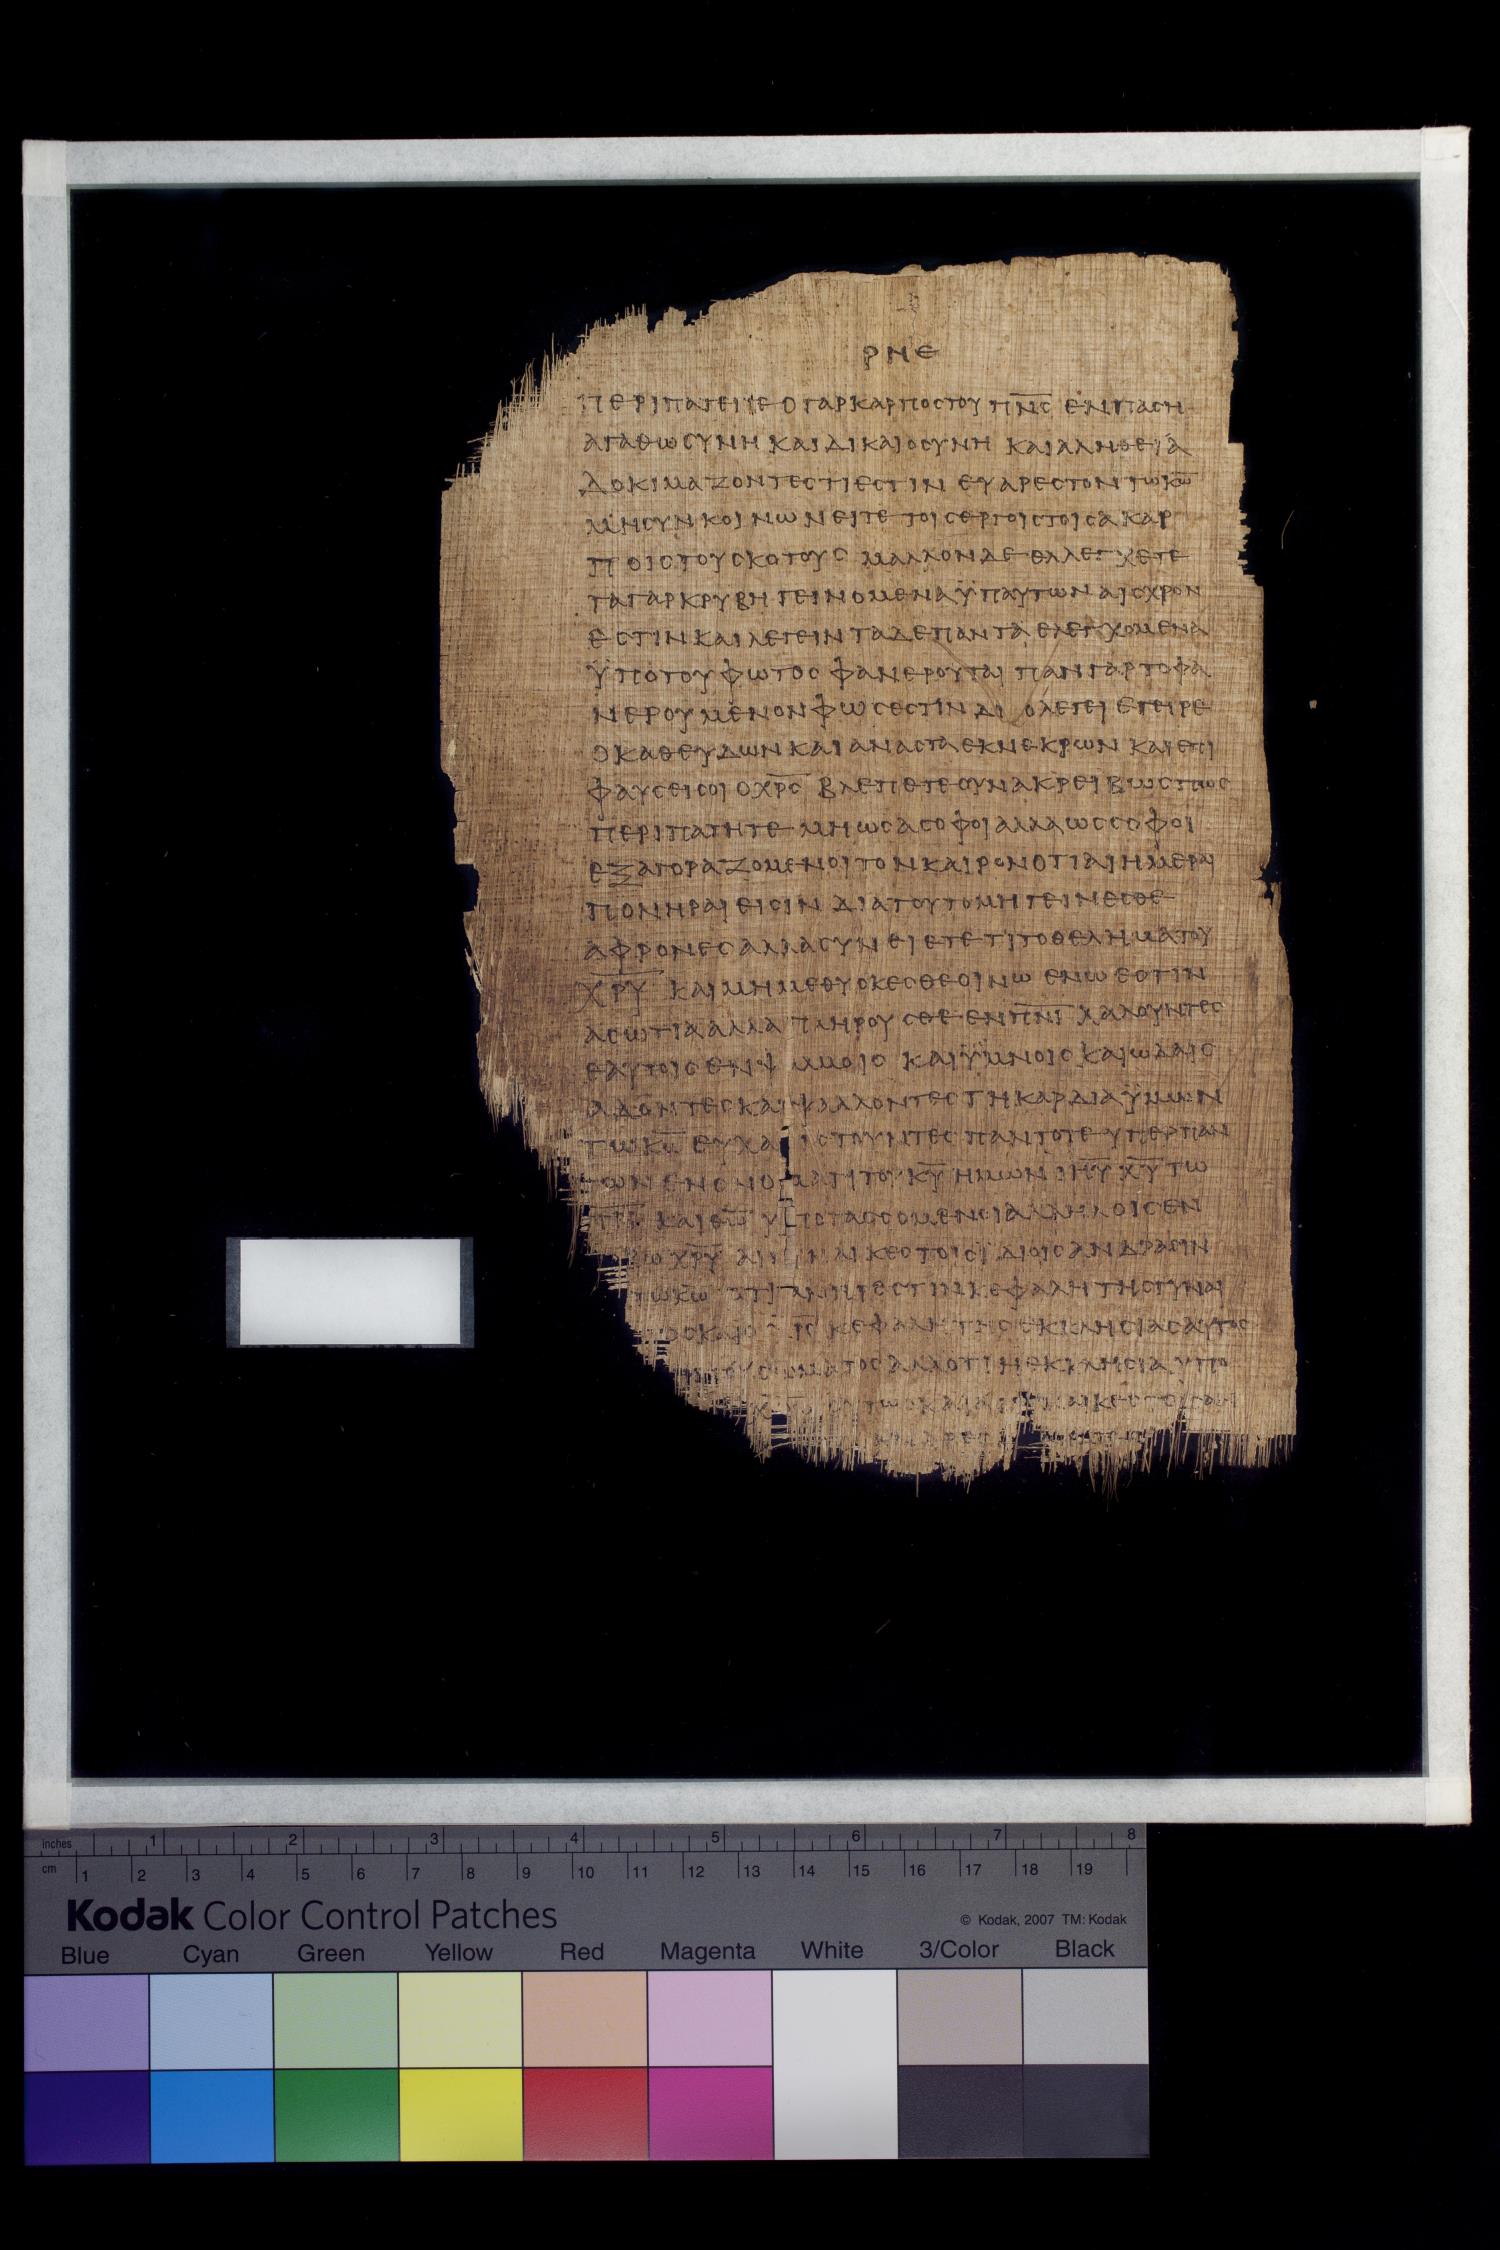 ΡΝΕ
ΠΕΡΙΠΑΤΕΙΤΕ Ο ΓΑΡ ΚΑΡΠΟΣ ΤΟΥ ΠΝ̅Σ̅ ΕΝ ΠΑΣΗ
ΑΓΑΘΩΣΥΝΗ ΚΑΙ ΔΙΚΑΙΟΣΥΝΗ ΚΑΙ ΑΛΗΘΕΙΑ
ΔΟΚΙΜΑΖΟΝΤΕΣ ΤΙ ΕΣΤΙΝ ΕΥΑΡΕΣΤΟΝ ΤΩ Κ̅Ω̅
ΜΗ ΣΥΝΚΟΙΝΩΝΕΙΤΕ ΤΟΙΣ ΕΡΓΟΙΣ ΤΟΙΣ ΑΚΑΡ
ΠΟΙΣ ΤΟΥ ΣΚΟΤΟΥΣ ΜΑΛΛΟΝ ΔΕ ΕΛΛΕΓΧΕΤΕ
ΤΑ ΓΑΡ ΚΡΥΒΗ ΓΕΙΝΟΜΕΝΑ ΫΠ ΑΥΤΩΝ ΑΙΣΧΡΟΝ
ΕΣΤΙΝ ΚΑΙ ΛΕΓΕΙΝ ΤΑ ΔΕ ΠΑΝΤΑ ΕΛΕΓΧΟΜΕΝΑ
ΫΠΟ ΤΟΥ ΦΩΤΟΣ ΦΑΝΕΡΟΥΤΑΙ ΠΑΝ ΓΑΡ ΤΟ ΦΑ
ΝΕΡΟΥΜΕΝΟΝ ΦΩΣ ΕΣΤΙΝ ΔΙΟ ΛΕΓΕΙ ΕΓΕΙΡΕ
Ο ΚΑΘΕΥΔΩΝ ΚΑΙ ΑΝΑΣΤΑ ΕΚ ΝΕΚΡΩΝ ΚΑΙ ΕΠΙ
ΦΑΥΣΕΙ ΣΟΙ Ο Χ̅Ρ̅Σ̅ ΒΛΕΠΕΤΕ ΟΥΝ ΑΚΡΕΙΒΩΣ ΠΩΣ
ΠΕΡΙΠΑΤΗΤΕ ΜΗ ΩΣ ΑΣΟΦΟΙ ΑΛΛΑ ΩΣ ΣΟΦΟΙ
ΕΞΑΓΟΡΑΖΟΜΕΝΟΙ ΤΟΝ ΚΑΙΡΟΝ ΟΤΙ ΑΙ ΗΜΕΡΑΙ
ΠΟΝΗΡΑΙ ΕΙΣΙΝ ΔΙΑ ΤΟΥΤΟ ΜΗ ΓΕΙΝΕΣΘΕ
ΑΦΡΟΝΕΣ ΑΛΛΑ ΣΥΝΕΙΕΤΕ ΤΙ ΤΟ ΘΕΛΗΜΑ ΤΟΥ
Χ̅Ρ̅Υ̅ ΚΑΙ ΜΗ ΜΕΘΥΣΚΕΣΘΕ ΟΙΝΩ ΕΝ Ω ΕΣΤΙΝ
ΑΣΩΤΙΑ ΑΛΛΑ ΠΛΗΡΟΥΣΘΕ ΕΝ Π̅Ν̅Ι̅ ΛΑΛΟΥΝΤΕΣ
ΕΑΥΤΟΙΣ ΕΝ Ψ ΜΜΟΙΣ ΚΑΙ ΫΜΝΟΙΣ ΚΑΙ ΩΔΑΙΣ
ΑΔΟΝΤΕΣ ΚΑΙ ΨΑΛΛΟΝΤΕΣ ΤΗ ΚΑΡΔΙΑ ΫΜΩΝ
ΤΩ Κ̅Ω̅ ΕΥΧΑ ΙΣΤΟΥΝΤΕΣ ΠΑΝΤΟΤΕ ΥΠΕΡ ΠΑΝ
ΤΩΝ ΕΝ ΟΝΟΜΑΤΙ ΤΟΥ Κ̅Υ̅ ΗΜΩΝ Ι̅Η̅Υ̅ Χ̅Υ̅ ΤΩ
Π̅Ρ̅Ι̅ ΚΑΙ Θ̅Ω̅ Υ ΠΟΤΑΣΣΟΜΕΝΟΙ ΑΛΛΗΛΟΙΣ ΕΝ
ΒΩ Χ̅Ρ̅Υ̅ ΑΙ ΓΥΝΑΙΚΕΣ ΤΟΙΣ ΙΔΙΟΙΣ ΑΝΔΡΑΣΙΝ
ΤΩ Κ̅Ω̅ ΟΤΙ ΑΝΗΡ ΕΣΤΙΝ ΚΕΦΑΛΗ ΤΗΣ ΓΥΝΑΙ
ΟΣ ΚΑΙ Ο Χ̅Ρ̅Σ̅ ΚΕΦΑΛΗ ΤΗΣ ΕΚΚΛΗΣΙΑΣ ΑΥΤΟΣ
ΤΟΥ ΣΩΜΑΤΟΣ ΑΛΛ ΟΤΙ Η ΕΚΚΛΗΣΙΑ ΥΠΟ
ΟΥΤΩΣ ΚΑΙ ΑΙ ΓΥΝΑΙΚΕΣ ΤΟΙΣ ΑΝ